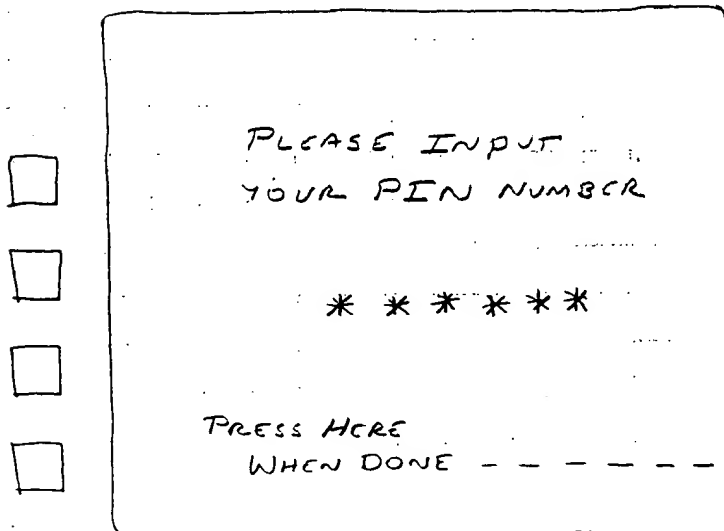 PLEASE INPUT
YOUR PIN NUMBER
* * * * * *
PRESS HERE
WHEN DONE - - - - - -